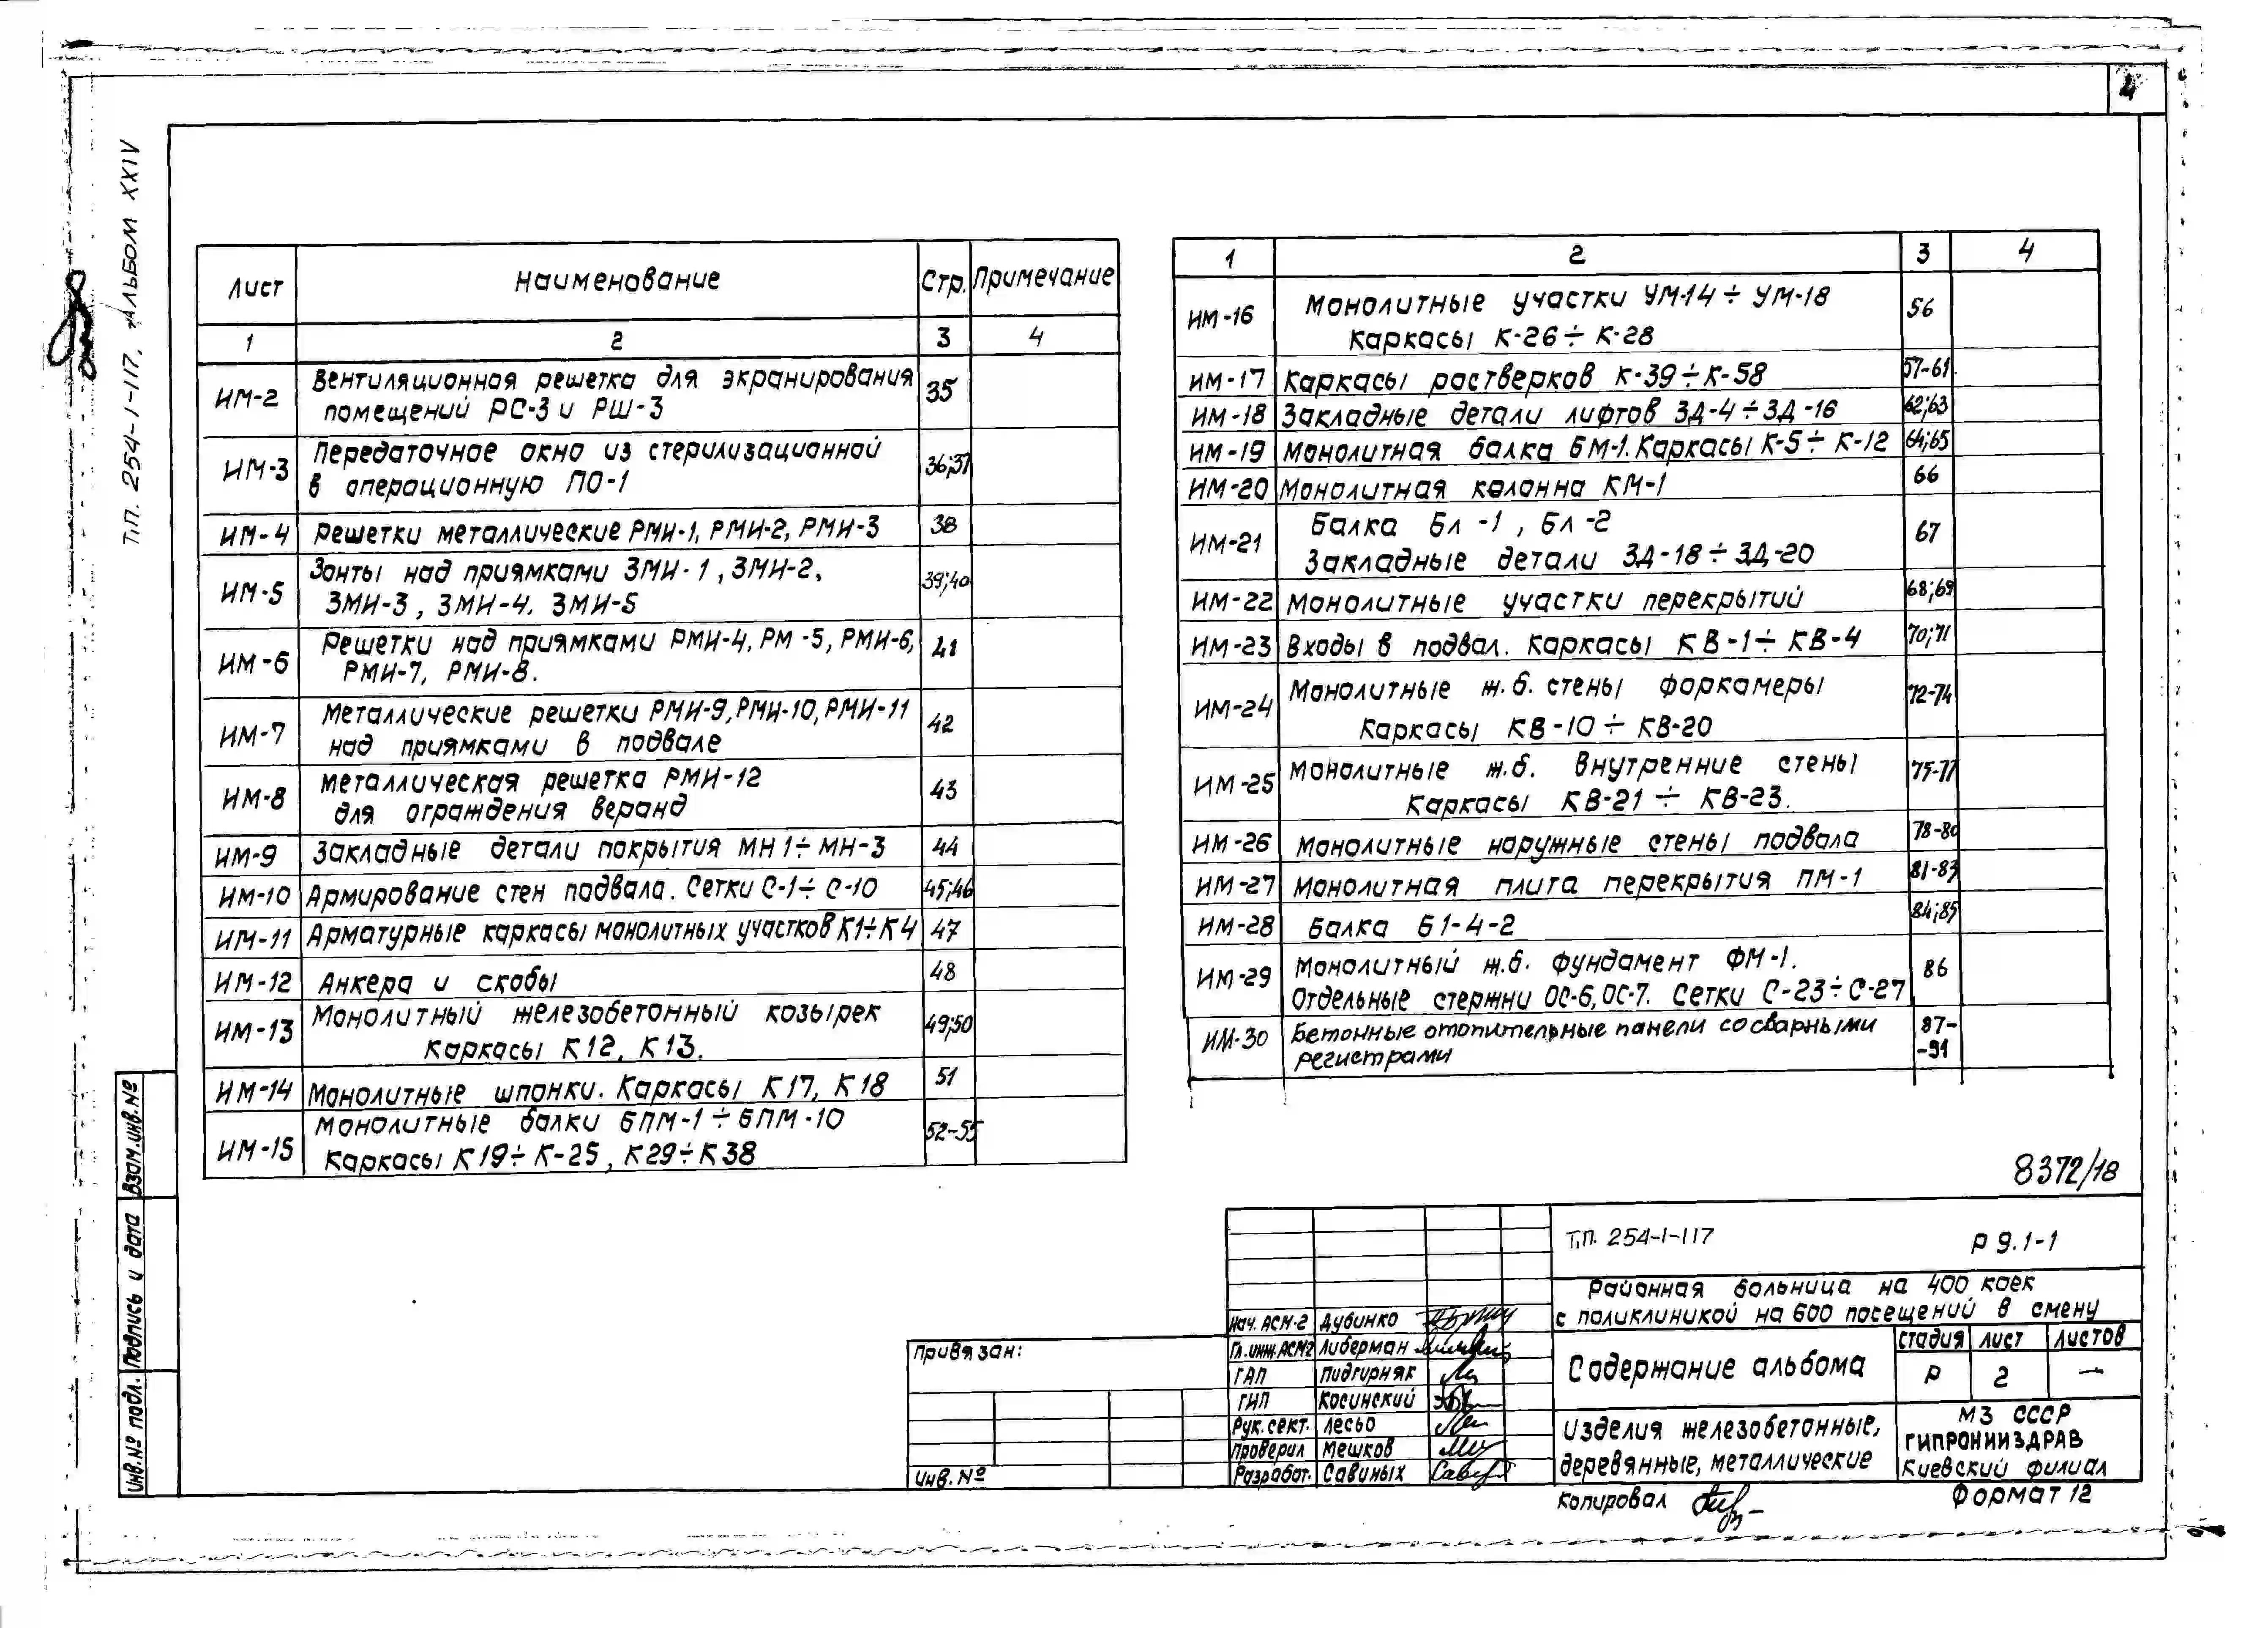 4
Т.П. 254-1-117. Альбом XXIV
Лист Наименование Стр. Примечание
1 2 3 4
ИМ-2 Вентиляционная решетка для экранирования 35
помещений РС-3 и РШ-3
ИМ-3 Передаточное окно из стерилизационной 36;37
в операционную ПО-1
ИМ-4 Решетки металлические РМИ-1, РМИ-2, РМИ-3 38
ИМ-5 Зонты над приямками ЗМИ-1, ЗМИ-2, 39;40
ЗМИ-3, ЗМИ-4. ЗМИ-5
ИМ-6 Решетки над приямками РМИ-4, РМ-5, РМИ-6, 41
РМИ-7, РМИ-8.
ИМ-7 Металлические решетки РМИ-9, РМИ-10, РМИ-11 42
над приямками в подвале
ИМ-8 Металлическая решетка РМИ-12 43
для ограждения веранд
ИМ-9 Закладные детали покрытия МН1÷МН-3 44
ИМ-10 Армирование стен подвала. Сетки С-1÷С-10 45;46
ИМ-11 Арматурные каркасы монолитных участков К1÷К4 47
ИМ-12 Анкера и скобы 48
ИМ-13 Монолитный железобетонный козырек 49;50
Каркасы К12, К13.
ИМ-14 Монолитные шпонки. Каркасы К17, К18 51
ИМ-15 Монолитные балки БПМ-1÷БПМ-10 52-55
Каркасы К19÷К-25, К29÷К38
1 2 3 4
ИМ-16 Монолитные участки УМ-14÷УМ-18 56
Каркасы К-26÷К-28
ИМ-17 Каркасы ростверков К-39÷К-58 57-61.
ИМ-18 Закладные детали лифтов ЗД-4÷ЗД-16 62;63
ИМ-19 Монолитная балка БМ-1. Каркасы К-5÷К-12 64;65
ИМ-20 Монолитная колонна КМ-1 66
ИМ-21 Балка Бл-1, Бл-2 67
Закладные детали ЗД-18÷ЗД-20
ИМ-22 Монолитные участки перекрытий 68;69
ИМ-23 Входы в подвал. Каркасы КВ-1÷КВ-4 70;71
ИМ-24 Монолитные ж.б. стены форкамеры 72-74
Каркасы КВ-10÷КВ-20
ИМ-25 Монолитные ж.б. внутренние стены 75-77
Каркасы КВ-21÷КВ-23.
ИМ-26 Монолитные наружные стены подвала 78-80
ИМ-27 Монолитная плита перекрытия ПМ-1 81-83
ИМ-28 Балка Б1-4-2 84;85
ИМ-29 Монолитный ж.б. фундамент ФМ-1. 86
Отдельные стержни ОС-6, ОС-7. Сетки С-23÷С-27
ИМ-30 Бетонные отопительные панели со сварными 87-
регистрами -91
8372/18
Т.П. 254-1-117 Р 9.1-1
Районная больница на 400 коек
с поликлиникой на 600 посещений в смену
Нач. АСМ-2 Дубинко
Гл. инж. АСМ2 Либерман
ГАП Пидгирняк
ГИП Косинский
Рук. сект. Лесьо
Проверил Мешков
Разработ. Савиных
Содержание альбома
стадия лист листов
Р 2 —
Изделия железобетонные,
деревянные, металлические
МЗ СССР
ГИПРОНИИЗДРАВ
Киевский филиал
Привязан:
Инв. №
Копировал
Формат 12
Взам. инв. №
Подпись и дата
Инв. № подл.